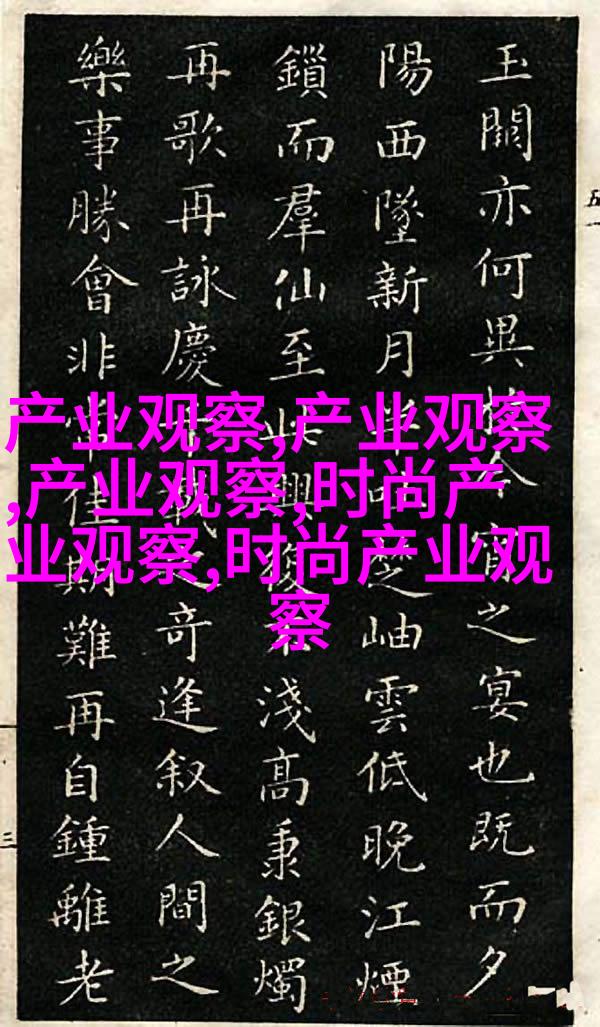 玉闕亦何異今宵之宴也既而夕
陽西墜新月岫雲低晚江煙
鎖而羣仙至此興復不淺高秉銀燭
再歌再詠慶載之奇逢叙人間之
樂事勝會非常佳期難再自鍾離老
产业观察,产业观察
,产业观察,时尚产
业观察,时尚产业观
察
五一
三